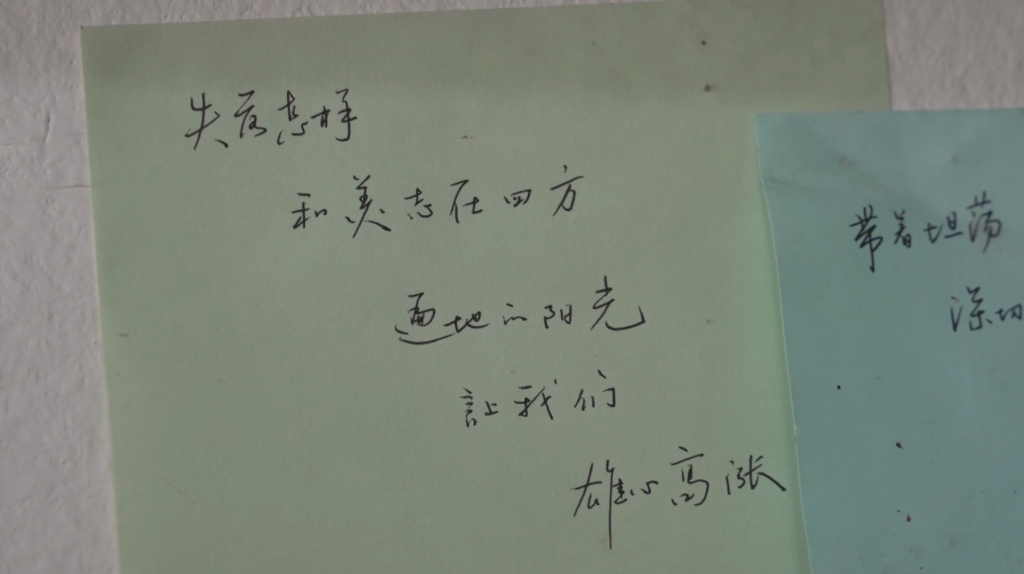 和美志在四方
遍地的阳光
让我们
雄心高涨
带着坦荡
深切